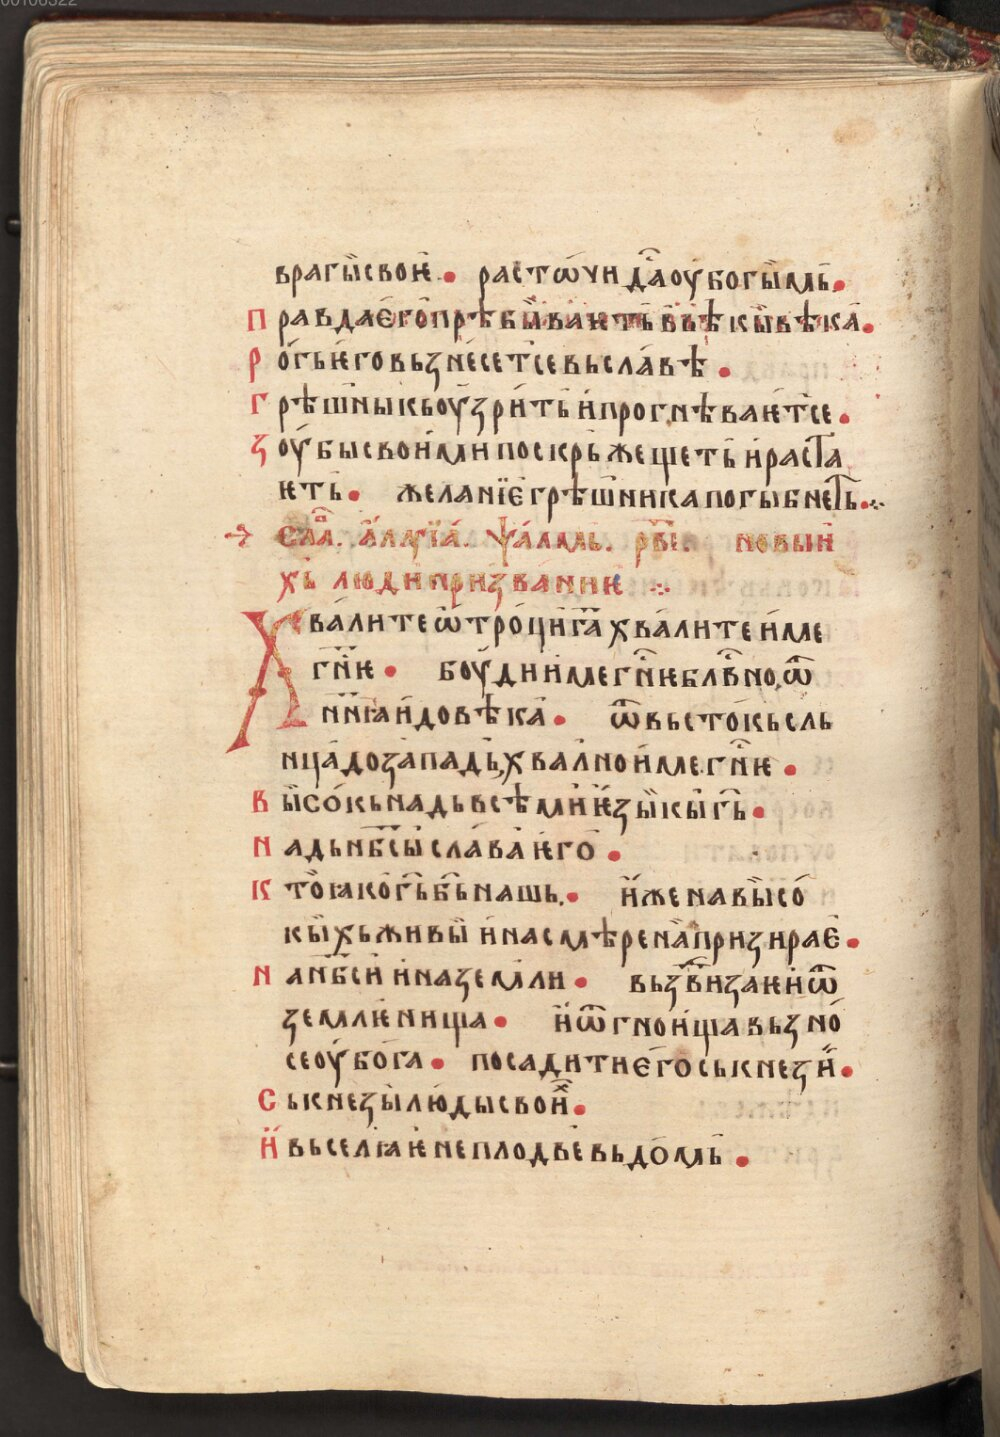 00106322
врагы̀свои҆ • растѡ́чи да́оу҆богы̀мь •
Правдаѐго̀прѣбы̀ваѥть̀въвѣкы̀вѣка̀ •
Рогьѥ҆говьзне́сетсевьсла́вѣ •
Грѣшныкьоу҆зри́ть и҆прогнѣваѥтсе •
Зоу́бысвои́мипоскрьжещеть и҆раста
ѥть • желанїѐгрѣшникапогыбнеть •
сла. а҆ллуїа́. ѱа́лмь. рв҃і. новыи҆
хь люди призва́ниѥ
Хвали́теѡ҆тро́цига҃хва́литеи҆ме
гн҃ѥ • боу́диимегн҃ѥблв҃но, ѿ
нн҃ꙗи҆довѣка̀ • ѿвьсто́кьсль
нца̀доза́падь, хва́лноиме.гн҃ѥ •
Вы̀со́кьнадьвсѣмиѥ҆зы̀кы̀гь҃ •
Надьнб҃сы̀сла́ваѥ҆го̀ •
Кто̀ꙗкогь҃бь҃нашь. • и҆́женавы̀со́
кы̀хьживы̀ и҆насмѣренаꙗпризираѐ •
Нанб҃сѝ и҆наземли • вьзв҃изаѥи҆ѿ
землѥни́ща • и҆ѿгнои́щавьзно́
сеоу҆бо́га • посадитиѐго̀ськнези̋ •
Ськнезы̀лю́дысвои҆х •
И҆вьселꙗѥнеплодвевьдо́мь •